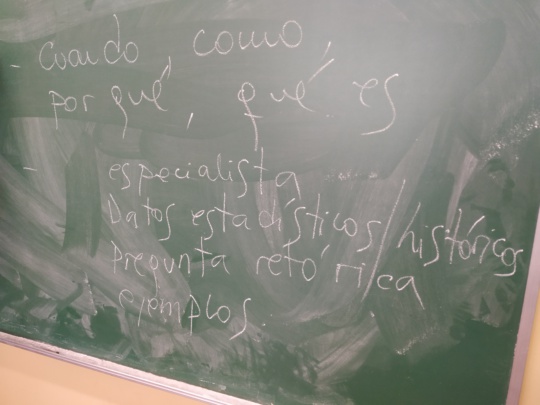 - Cuando como,
por qué, qué es
- especialista
Datos estadísticos/históricos
Pregunta retórica
Ejemplos.